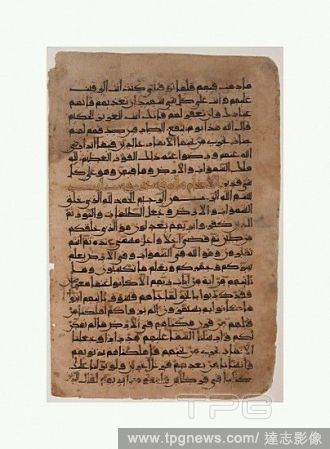 ما دمت فيهم فلما توفيتني كنت أنت الرقيب
عليهم وأنت على كل شي شهيد إن تعذبهم فإنهم
عبادك وإن تغفر لهم فإنك أنت العزيز الحكيم
قال الله هذا يوم ينفع الصادقين صدقهم لهم
جنات تجري من تحتها الأنهار خالدين فيها أبدا رضي
الله عنهم ورضوا عنه ذلك الفوز العظيم لله
ملك السموات والأرض وما فيهن وهو على كل
شي قدير
بسم الله الرحمن الرحيم الحمد لله الذي خلق
السموات والأرض وجعل الظلمات والنور ثم
الذين كفروا بربهم يعدلون هو الذي خلقكم
من طين ثم قضى أجلا وأجل مسمى عنده ثم أنتم
تمترون وهو الله في السموات وفي الأرض يعلم
سركم وجهركم ويعلم ما تكسبون وما
تأتيهم من آية من آيات ربهم إلا كانوا عنها معرضين
فقد كذبوا بالحق لما جاءهم فسوف يأتيهم أنباء
ما كانوا به يستهزئون ألم يروا كم أهلكنا من
قبلهم من قرن مكناهم في الأرض ما لم نمكن
لكم وأرسلنا السماء عليهم مدرارا وجعلنا
الأنهار تجري من تحتهم فأهلكناهم بذنوبهم
وأنشأنا من بعدهم قرنا آخرين ولو نزلنا عليك
كتابا في قرطاس فلمسوه بأيديهم لقال الذين
TPG
www.tpgnews.com/ 達志影像